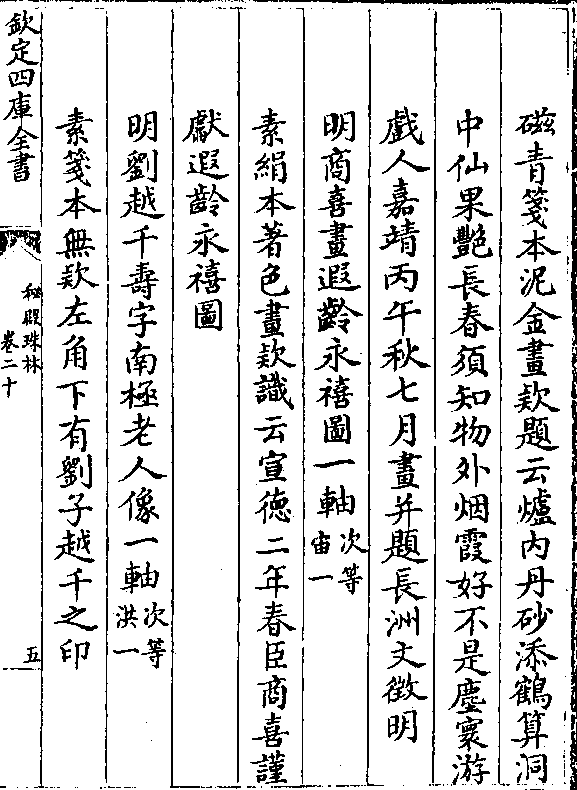 磁青箋本泥金畫欵題云爐内丹砂添鶴算洞
中仙果艷長春須知物外烟霞好不是塵寰游
戲人嘉靖丙午秋七月畫并題長洲文徴明
明商喜畫遐齡永禧圖一軸次等宙一
素絹本著色畫欵識云宣徳二年春臣商喜謹
獻遐齡永禧圖
明劉越千壽字南極老人像一軸次等洪一
素箋本無欵左角下有劉子越千之印
欽定四庫全書
秘殿珠林
卷二十
五